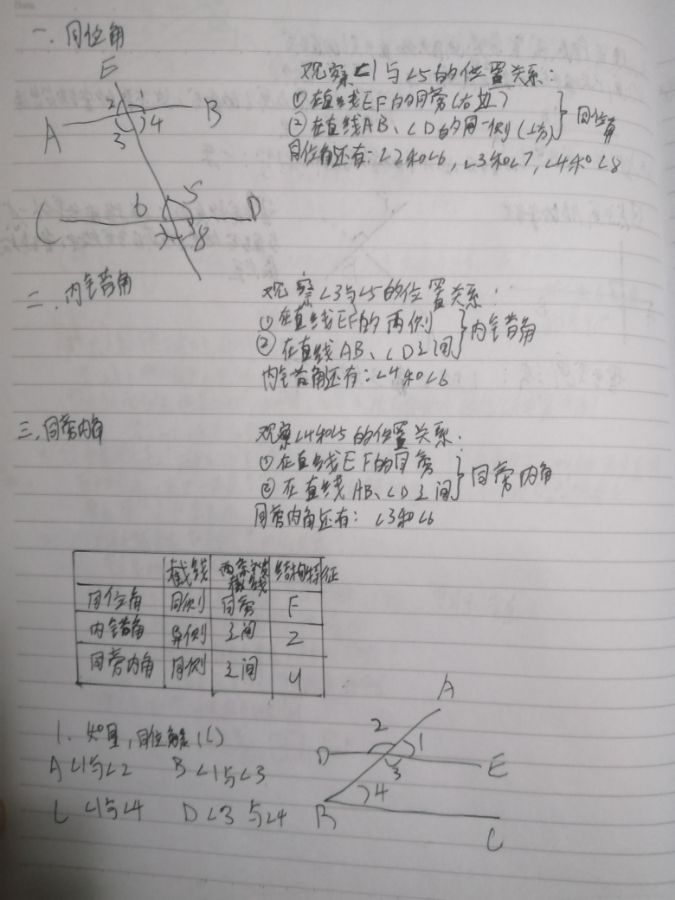 一、同位角
E
2 1
A 3 4 B
观察∠1与∠5的位置关系:
①在直线EF的同旁(右边)
②在直线AB、CD的同一侧(上方) } 同位角
同位角还有:∠2和∠6,∠3和∠7,∠4和∠8
6 5
C 7 8 D
二、内错角
观察∠3与∠5的位置关系:
①在直线EF的两侧
②在直线AB、CD之间 } 内错角
内错角还有:∠4和∠6
三、同旁内角
观察∠4和∠5的位置关系.
①在直线EF的同旁
②在直线AB、CD之间 } 同旁内角
同旁内角还有:∠3和∠6
截线 两条被截线 结构特征
同位角 同侧 同旁 F
内错角 异侧 之间 Z
同旁内角 同侧 之间 U
1. 如图,同位角是(C)
A ∠1与∠2 B ∠1与∠3
C ∠1与∠4 D ∠3与∠4
A
2 1
D 3 E
B 4
C